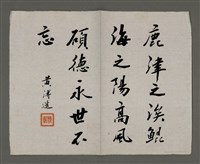 鹿津之涘鯤
海之陽高風
碩德永世不
忘
黃溥造